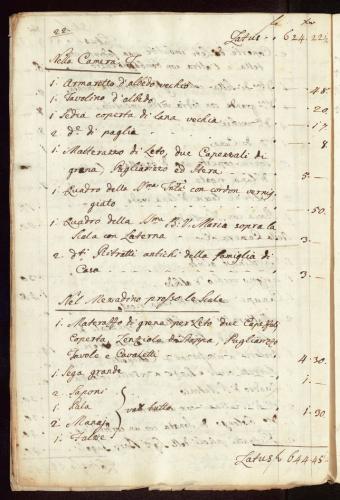 22.
Latus . . 624.22½
Nella Camera
1. Armaretto d'albedo vechio . 48.
1. Tavolino d'albedo . 20
1. Sedia coperta di lana vechia . 17
2. dº. di paglia . — 8
1. Matterazzo di Leto, due Capezzali di
grena, Pagliarizzo ed Itera . 5 —
1. Quadro della Sma. con cordon verni-
giato . — 50.
1. Quadro della Sma. B: V: Maria sopra la
Scala con Laterna . 3. —
2. dti. Ritratti antichi della famiglia di
Casa . 3. —
Nel Mezzadino presso la Scala
1. Materazzo di grena per Leto due
Coperta Lenziola di Stoppa, Pagliarizzo
Tavole e Cavaletti . 4.30.
1. Sega grande . 1. —
2. Saponi
1. Pala
2. Manaje
1. Falze
val: tutto . 1.30.
Latus f 644.45.